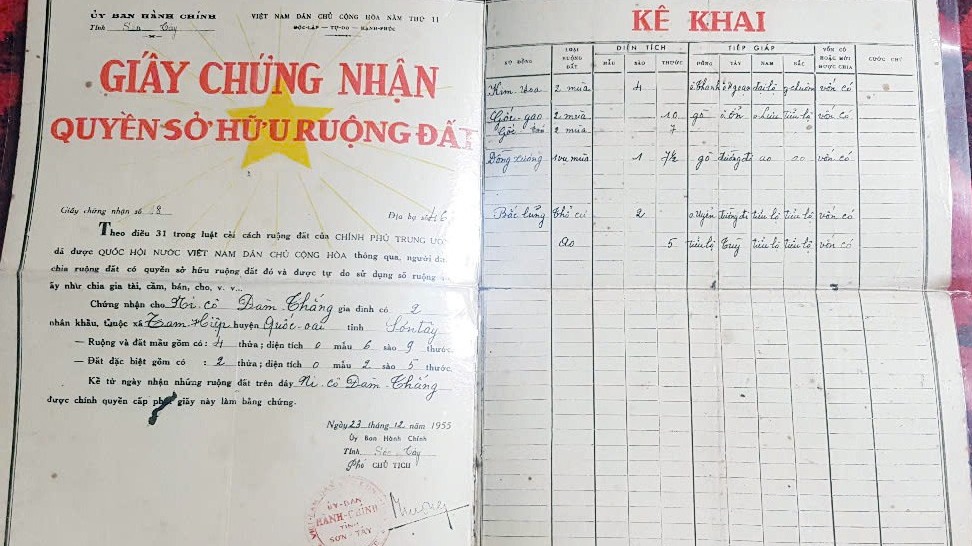 ỦY BAN HÀNH CHÍNH
Tỉnh Sơn Tây
VIỆT NAM DÂN CHỦ CỘNG HÒA NĂM THỨ 11
ĐỘC-LẬP — TỰ-DO — HẠNH-PHÚC
GIẤY CHỨNG NHẬN
QUYỀN SỞ HỮU RUỘNG ĐẤT
Giấy chứng nhận số 8
Địa bạ số 46
Theo điều 31 trong luật cải cách ruộng đất của CHÍNH PHỦ TRUNG ƯƠNG
đã được QUỐC HỘI NƯỚC VIỆT NAM DÂN CHỦ CỘNG HÒA thông qua, người được
chia ruộng đất có quyền sở hữu ruộng đất đó và được tự do sử dụng số ruộng đất
ấy như chia gia tài, cầm, bán, cho, v. v...
Chứng nhận cho Ni cô Đàm Thắng gia đình có 2
nhân khẩu, thuộc xã Tam Hiệp huyện Quốc-oai tỉnh Sơn tây
— Ruộng và đất mầu gồm có : 4 thửa ; diện tích 0 mẫu 6 sào 9 thước.
— Đất đặc biệt gồm có : 2 thửa ; diện tích 0 mẫu 2 sào 5 thước.
Kể từ ngày nhận những ruộng đất trên đây Ni cô Đàm Thắng
được chính quyền cấp phát giấy này làm bằng chứng.
Ngày 23 tháng 12 năm 1955
Ủy Ban Hành Chính
Tỉnh Sơn Tây
Phó CHỦ TỊCH
ỦY-BAN
HÀNH-CHÍNH
TỈNH
SƠN-TÂY
KÊ KHAI
XỨ ĐỒNG LOẠI RUỘNG ĐẤT DIỆN TÍCH TIẾP GIÁP VỐN CÓ HOẶC MỚI ĐƯỢC CHIA CƯỚC CHÚ
MẪU SÀO THƯỚC ĐÔNG TÂY NAM BẮC
2 mùa 4 ô. Thanh đại lộ vốn có
Gốc-gạo 2 mùa 10 gò tiểu lộ vốn có
Gốc 2 mùa 7
1 vụ mùa 1 7½ gò đường đi ao ao vốn có
thổ cư 2 đường đi tiểu lộ tiểu lộ vốn có
Ao 5 tiểu lộ tiểu lộ tiểu lộ vốn có